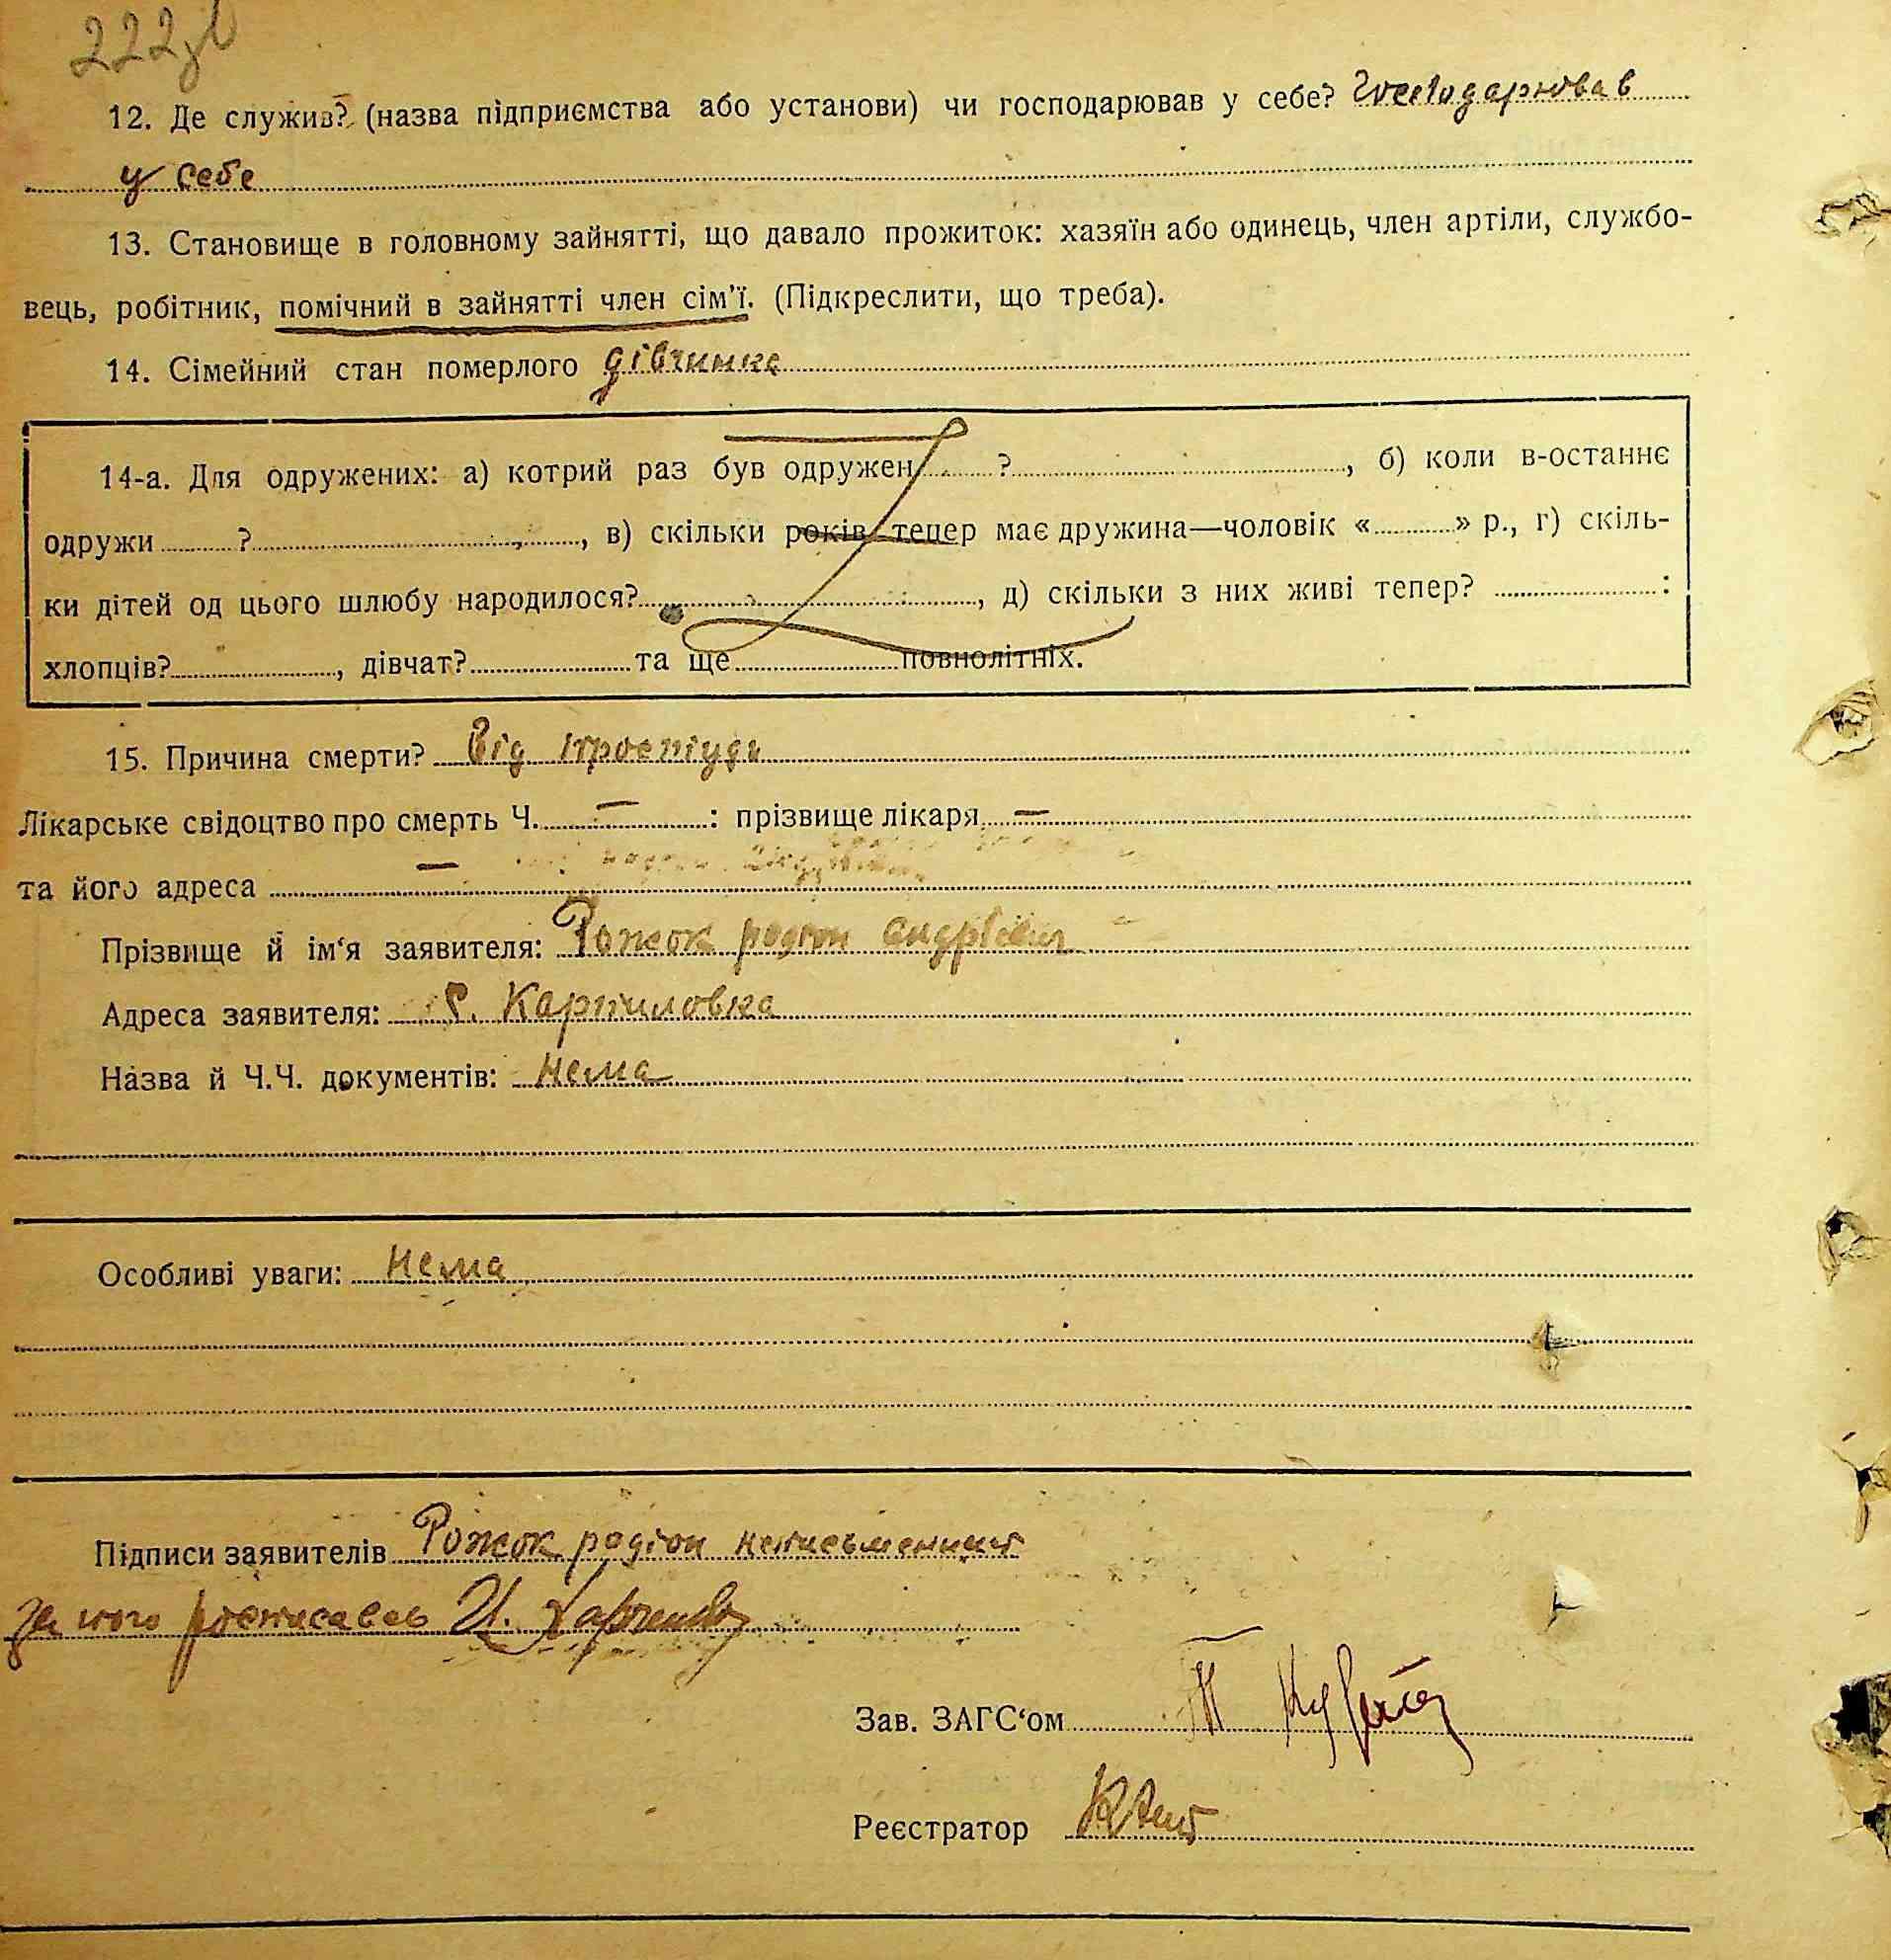 222
12. Де служив? (назва підприємства або установи) чи господарював у себе? Господарював
у себе
13. Становище в головному зайнятті, що давало прожиток: хазяїн або одинець, член артіли, службо-
вець, робітник, помічний в зайнятті член сім'ї. (Підкреслити, що треба).
14. Сімейний стан померлого дівчинка
14-а. Для одружених: а) котрий раз був одружен ? , б) коли в-останнє
одружи ? , в) скільки років тепер має дружина—чоловік « » р., г) скіль-
ки дітей од цього шлюбу народилося? , д) скільки з них живі тепер? :
хлопців? , дівчат? та ще повнолітніх.
15. Причина смерти? Від простуди
Лікарське свідоцтво про смерть Ч. — : прізвище лікаря —
та його адреса —
Прізвище й ім‘я заявителя: Рожок родіон андрієвич
Адреса заявителя: С. Карпиловка
Назва й Ч.Ч. документів: нема
Особливі уваги: нема
Підписи заявителів Рожок родіон неписьменний
за його росписавсь И. Харченко
Зав. ЗАГС‘ом
Реєстратор